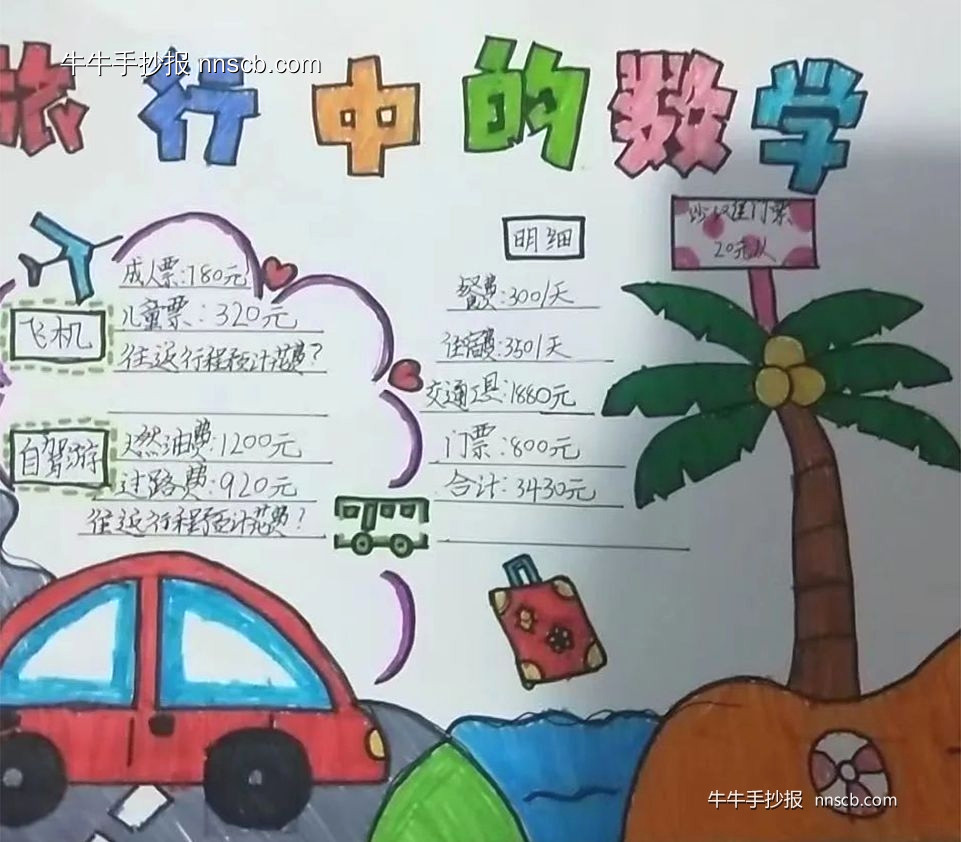 旅行中的数学
牛牛手抄报 nnscb.com
成人票:180元
飞机
儿童票:320元
往返行程预计花费?
自驾游
燃油费:1200元
过路费:920元
往返行程预计花费?
明细
餐费:300/天
住宿费:350/天
交通工具:1880元
门票:800元
合计:3430元
门票
20元/人
牛牛手抄报 nnscb.com